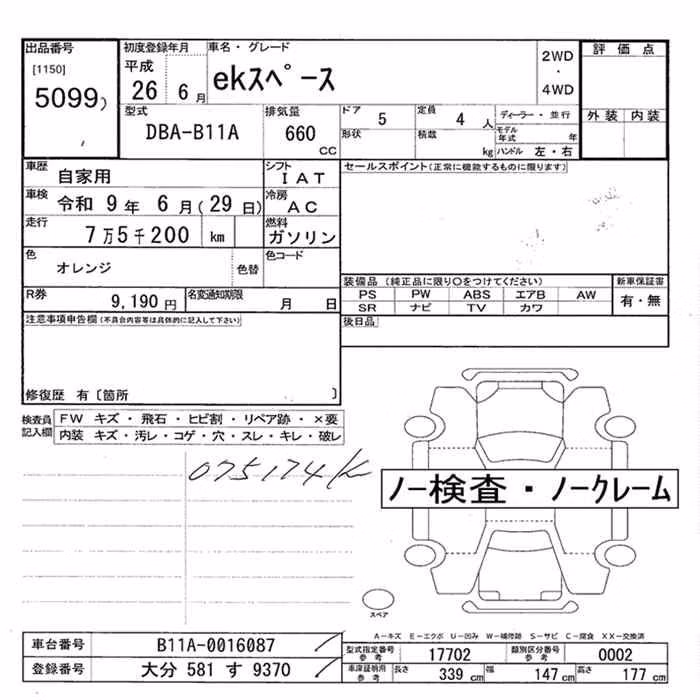 出品番号
[1150]
5099
初度登録年月
平成
26 6月
車名・グレード
ekスペース
2WD
・
4WD
評価点
外装 内装
型式
DBA-B11A
排気量
660
CC
ドア 5
形状
定員 4 人
積載 kg
ディーラー・並行
モデル年式 年
ハンドル 左・右
車歴
自家用
シフト
IAT
車検
令和 9年 6月(29日)
冷房
AC
走行
7万5千200 km
燃料
ガソリン
色
オレンジ
色替
色コード
R券
9,190円
名変通知期限
月 日
セールスポイント(正常に機能するものに限ります)
装備品(純正品に限り○をつけてください)
PS PW ABS エアB AW
SR ナビ TV カワ
新車保証書
有・無
後日品
注意事項申告欄(不具合内容等は具体的に記入して下さい)
修復歴 有〔箇所 〕
検査員記入欄
FW キズ・飛石・ヒビ割・リペア跡・×要
内装 キズ・汚レ・コゲ・穴・スレ・キレ・破レ
075174K
ノー検査・ノークレーム
スペア
A-キズ E-エクボ U-凹み W-補修跡 S-サビ C-腐食 XX-交換済
車台番号 B11A-0016087
登録番号 大分 581 す 9370
型式指定番号
参考
17702
類別区分番号
参考
0002
車庫証明用
参考
長さ 339 cm 幅 147 cm 高さ 177 cm